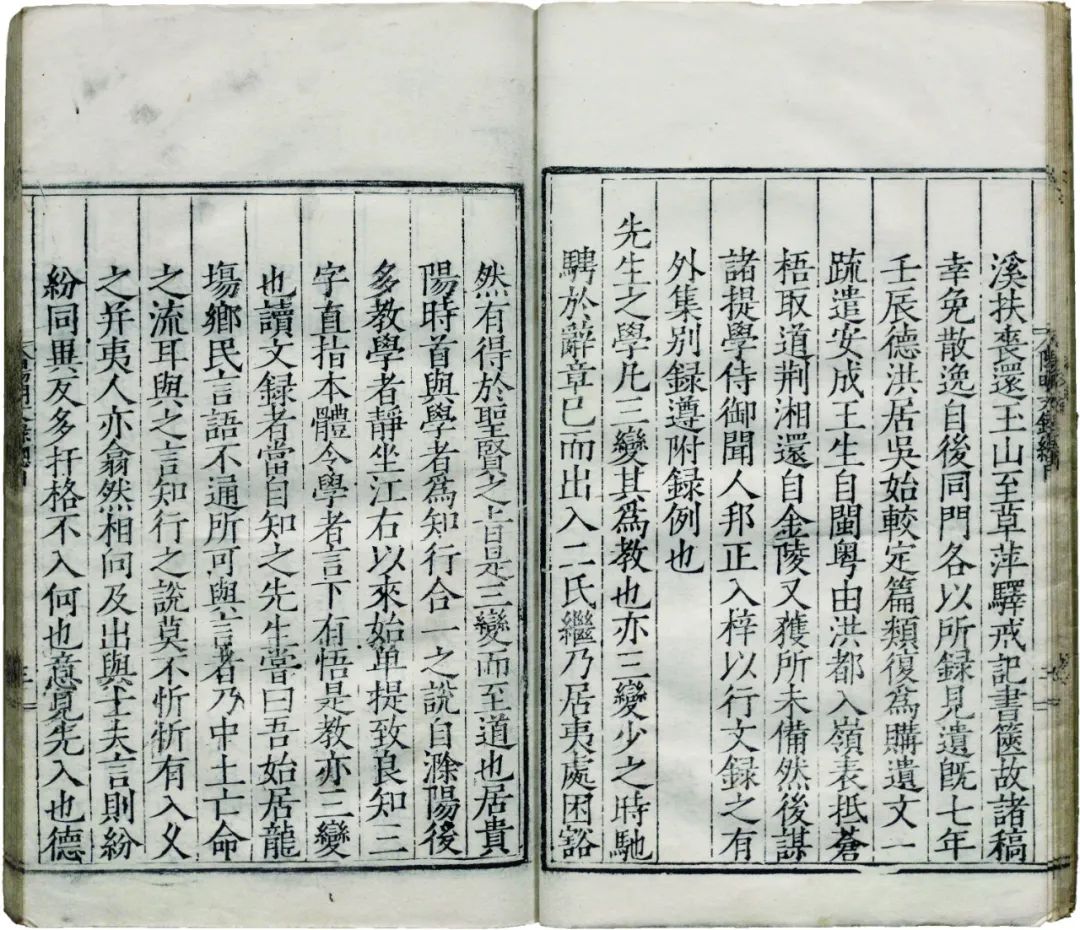 溪扶喪還玉山至草萍驛戒記書篋故諸稿
幸免散逸自後同門各以所録見遺既七年
壬辰德洪居吳始較定篇類復爲購遺文一
疏遣安成王生自閩粤由洪都入嶺表抵蒼
梧取道荆湘還自金陵又獲所未備然後謀
諸提學侍御聞人邦正入梓以行文録之有
外集别録遵附録例也
先生之學凢三變其爲教也亦三變少之時馳
騁於辭章已而出入二氏繼乃居夷處困豁
然有得於聖賢之旨是三變而至道也居貴
陽時首與學者爲知行合一之說自滁陽後
多教學者靜坐江右以來始單提致良知三
字直指本體令學者言下有悟是教亦三變
也讀文録者當自知之先生嘗曰吾始居龍
塲鄉民言語不通所可與言者乃中土亡命
之流耳與之言知行之說莫不忻忻有入乆
之并夷人亦翕然相向及出與士夫言則紛
紛同異反多扞格不入何也意見先入也德